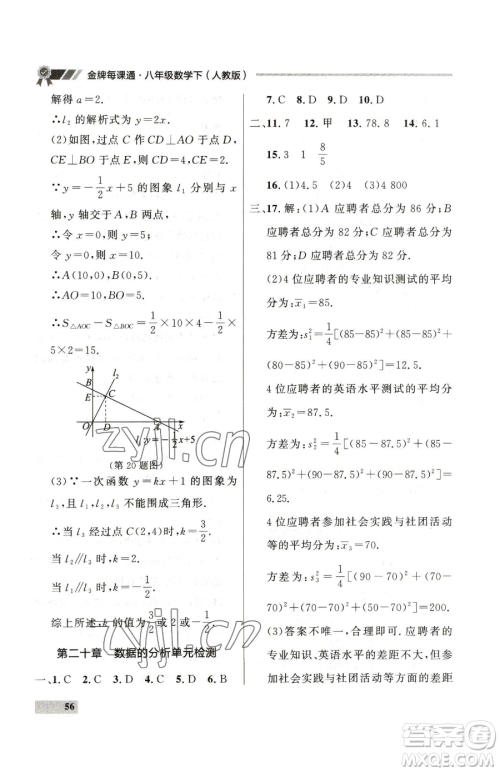 金牌每课通·八年级数学下（人教版）
解得 a=2.
∴l₁ 的解析式为 y=2x.
(2)如图，过点 C 作 CD⊥AO 于点 D，
CE⊥BO 于点 E，则 CD=4，CE=2.
∵y=-1/2x+5 的图象 l₁ 分别与 x
轴，y 轴交于 A，B 两点，
∴令 x=0，则 y=5，
令 y=0，则 x=10.
∴A(10，0)，B(0，5).
∴S△AOC-S△BOC=1/2×10×4-1/2×
5×2=15.
y
l₂
B
E
C
O
D
A
x
l₁ y=-1/2x+5
（第 20 题图）
(3)∵一次函数 y=kx+1 的图象为
l₃，且 l₁，l₂，l₃ 不能围成三角形.
∴当 l₃ 经过点 C(2，4)时，k=3/2.
当 l₂∥l₃ 时，k=2.
当 l₁∥l₃ 时，k=-1/2.
综上所述，k 的值为 3/2 或 2 或 -1/2.
第二十章 数据的分析单元检测
一、1. C 2. C 3. C 4. C 5. D 6. D
56
7. C 8. D 9. D 10. D
二、11. 7 12. 甲 13. 78.8 14. 6.1
15. 3 1 8/5
16. (1)4.5 (2)4 (3)4 800
三、17. 解：(1)A 应聘者总分为 86 分；B
应聘者总分为 82 分；C 应聘者总分为
81 分；D 应聘者总分为 82 分.
(2)4 位应聘者的专业知识测试的平均
分为 x̄₁=85.
方差为：s₁²=1/4[(85-85)²+(85-85)²+
(80-85)²+(90-85)²]=12.5.
4 位应聘者的英语水平测试的平均分
为 x̄₂=87.5.
方差为：s₂²=1/4[(85-87.5)²+(85-
87.5)²+(90-87.5)²+(90-87.5)²]=
6.25.
4 位应聘者参加社会实践与社团活动
等的平均分为 x̄₃=70.
方差为：s₃²=1/4[(90-70)²+(70-
70)²+(70-70)²+(50-70)²]=200.
(3)答案不唯一，合理即可. 应聘者的专
业知识、英语水平的差距不大，但参加
社会实践与社团活动等方面的差距
zyjl.cn
zyjl.cn